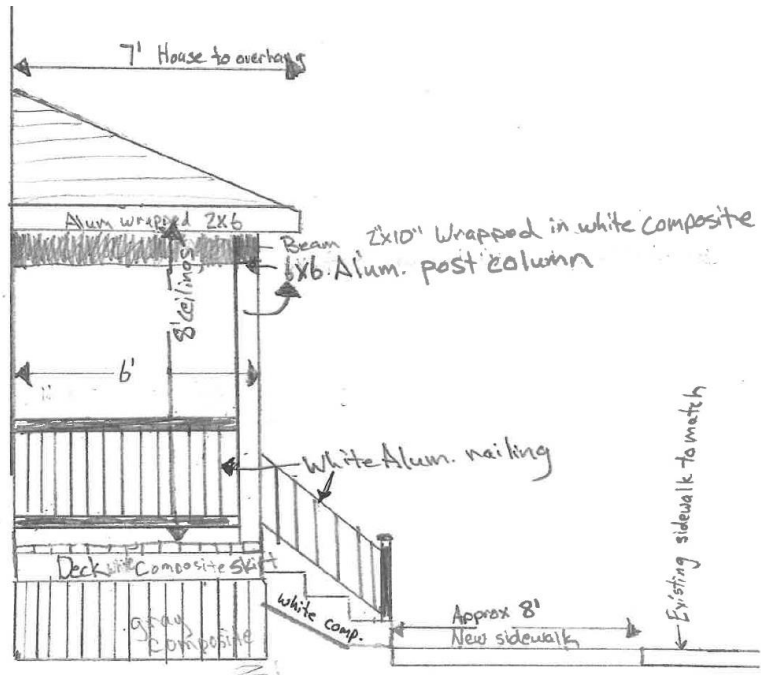 7' House to overhang
Alum wrapped 2x6
Beam 2"x10" Wrapped in white composite
6x6 Alum. post column
8' ceilings
6'
White Alum. railing
Deck white Composite Skirt
gray
composite
white comp.
Approx 8'
New sidewalk
Existing sidewalk to match